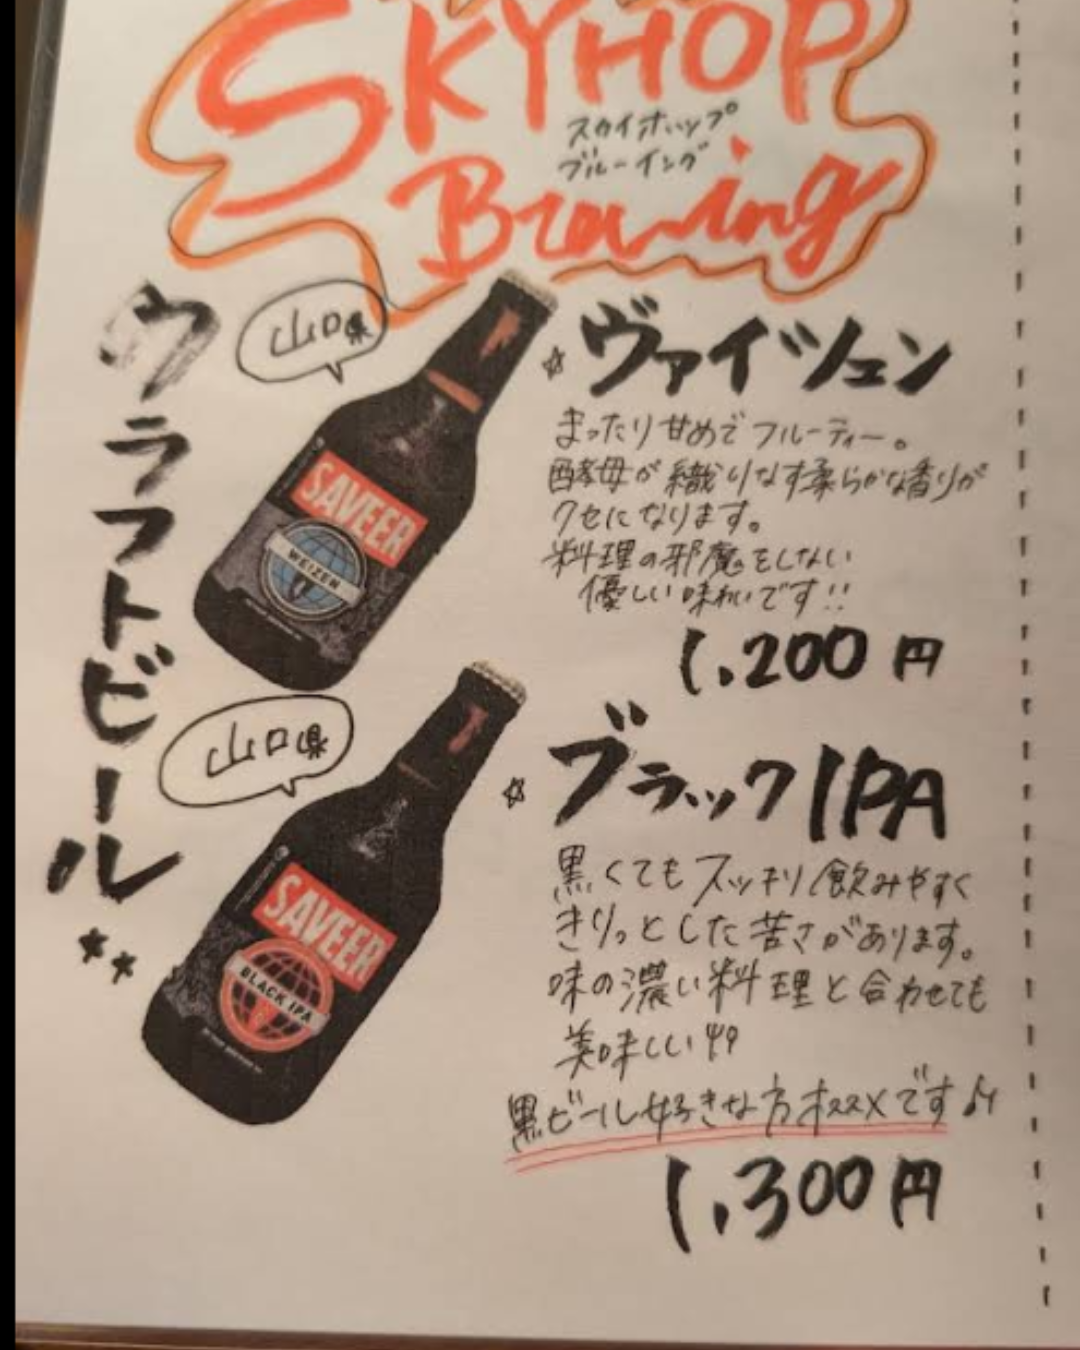 SKYHOP
スカイホップ
ブルーイング
Brewing
クラフトビール
山口県
SAVEER
WEIZEN
☆ ヴァイツェン
まったり甘めでフルーティー。
酵母が織りなす柔らかな香りが
クセになります。
料理の邪魔をしない
優しい味わいです!!
1,200円
山口県
SAVEER
BLACK IPA
☆ ブラックIPA
黒くてもスッキリ飲みやすく
きりっとした苦さがあります。
味の濃い料理と合わせても
美味しい!!
黒ビール好きな方オススメです♪
1,300円